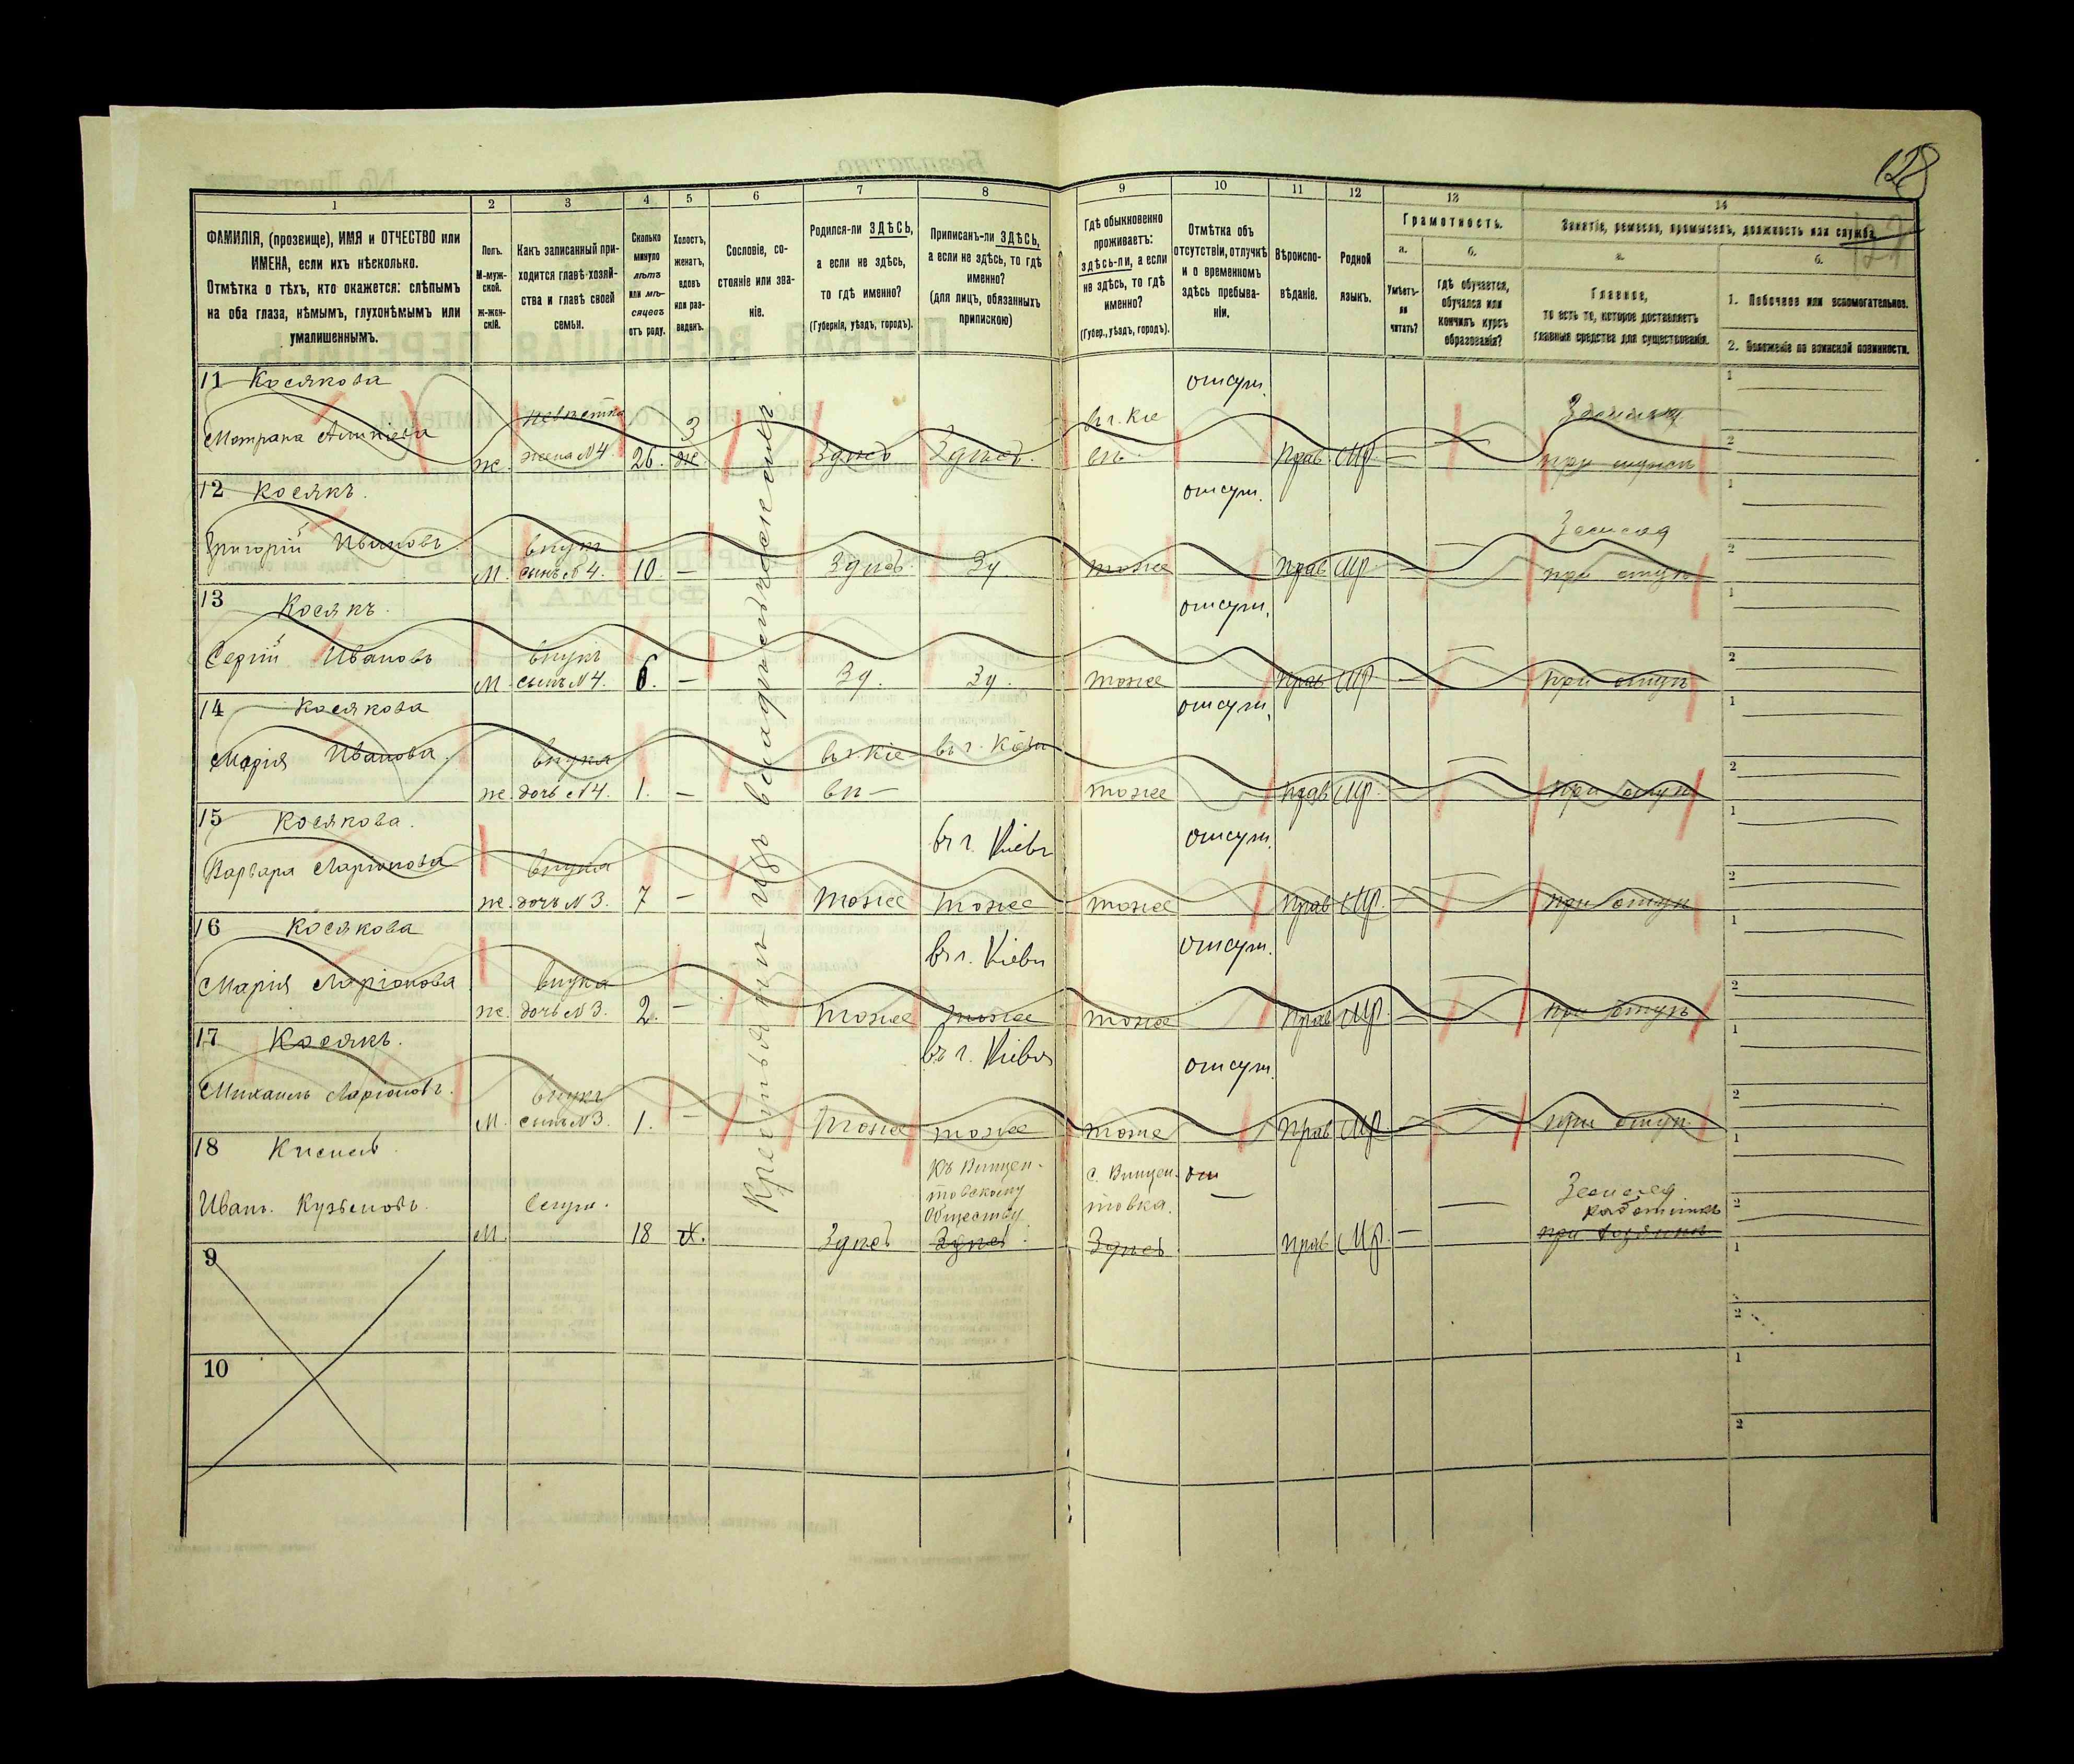 128
1 2 3 4 5 6 7 8 9 10 11 12 13 14
ФАМИЛІЯ, (прозвище), ИМЯ и ОТЧЕСТВО или
ИМЕНА, если ихъ нѣсколько.
Отмѣтка о тѣхъ, кто окажется: слѣпымъ
на оба глаза, нѣмымъ, глухонѣмымъ или
умалишеннымъ.
Полъ.
М-муж-
ской.
Ж-жен-
скій.
Какъ записанный при-
ходится главѣ хозяй-
ства и главѣ своей
семьи.
Сколько
минуло
лѣтъ
или мѣ-
сяцевъ
отъ роду.
Холостъ,
женатъ,
вдовъ
или раз-
веденъ.
Сословіе, со-
стояніе или зва-
ніе.
Родился-ли ЗДѢСЬ,
а если не здѣсь,
то гдѣ именно?
(Губернія, уѣздъ, городъ).
Приписанъ-ли ЗДѢСЬ,
а если не здѣсь, то гдѣ
именно?
(для лицъ, обязанныхъ
припискою)
Гдѣ обыкновенно
проживаетъ:
здѣсь-ли, а если
не здѣсь, то гдѣ
именно?
(Губер., уѣздъ, городъ).
Отмѣтка объ
отсутствіи, отлучкѣ
и о временномъ
здѣсь пребыва-
ніи.
Вѣроиспо-
вѣданіе.
Родной
языкъ.
Грамотность.
а.
Умѣетъ-
ли
читать?
б.
Гдѣ обучается,
обучался или
кончилъ курсъ
образованія?
Занятіе, ремесло, промыселъ, должность или служба.
а.
Главное,
то есть то, которое доставляетъ
главныя средства для существованія.
б.
1. Побочное или вспомогательное.
2. Положеніе по воинской повинности.
Крестьянинъ изъ владѣльческихъ
11 Косякова отсут.
невѣстка З въ г. Кіе
Матрана ж. жена №4 26. ж. Здѣсь Здѣсь. вѣ. Прав. Мр. —
12 Косякъ. отсут.
Григорій Ивановъ. внукъ
М. сынъ №4. 10. — Здѣсь Зд. тоже Прав Мр. —
13 Косякъ. отсут.
Сергій Ивановъ внукъ
М. сынъ №4. 6. — Зд. Зд. тоже Прав Мр. —
14 Косякова отсут.
Марія Иванова. внука въ г. Кіе въ г. Кіевѣ
ж. дочь №4. 1. — вѣ — тоже Прав Мр. —
15 Косякова. въ г. Кіевѣ отсут.
Варвара Ларіонова внука
ж. дочь №3. 7 — тоже тоже тоже Прав Мр. —
16 Косякова въ г. Кіевѣ отсут.
Марія Ларіонова внука
ж. дочь №3. 2. — тоже тоже тоже Прав Мр. —
17 Косякъ. въ г. Кіевѣ отсут.
Михаилъ Ларіоновъ. внукъ
М. сынъ №3 1. — тоже тоже тоже Прав Мр. —
18 Кисиль къ Винцен- с. Винцен-
товскому товка.
Иванъ Кузьмовъ. Обществу работникъ
М. 18 Х. Здѣсь Здѣсь Здѣсь Прав Мр. —
9
10
1
2
1
2
1
2
1
2
1
2
1
2
1
2
1
2
1
2
1
2